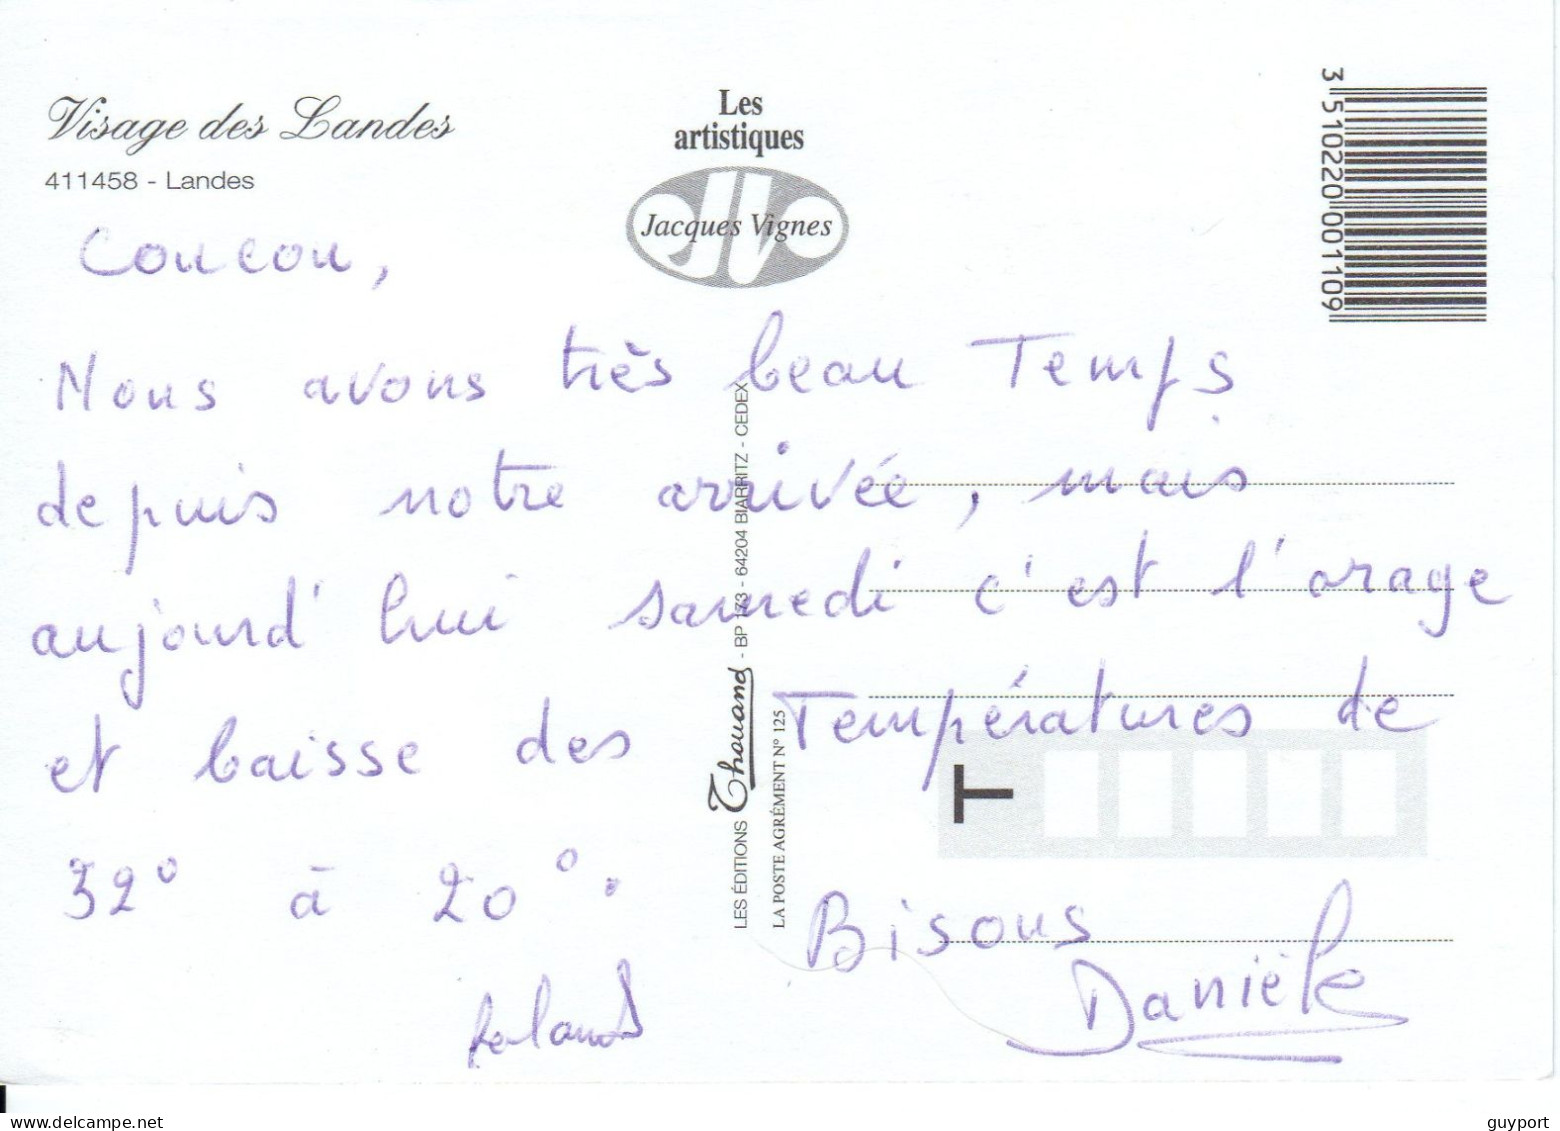 Visage des Landes
411458 - Landes
Les
artistiques
Jacques Vignes
3 510220 001109
Coucou,
Nous avons très beau Temps
depuis notre arrivée, mais
aujourd'hui samedi c'est l'orage
et baisse des Températures de
32° à 20°.
Bisous
Danièle
LES ÉDITIONS Thouand - BP 173 - 64204 BIARRITZ - CEDEX
LA POSTE AGRÉMENT N° 125
T
delcampe.net
guyport